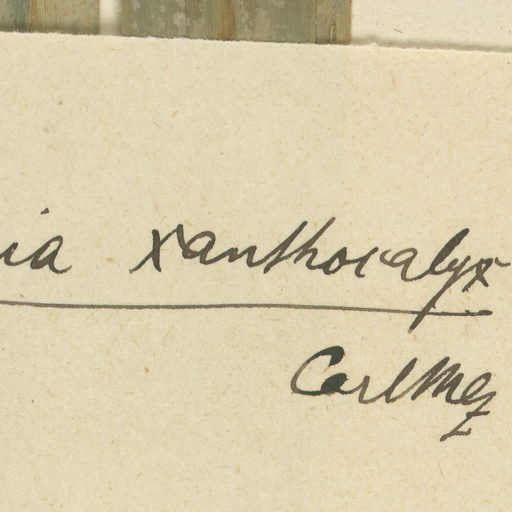 ia xanthocalyx
Carl Mez